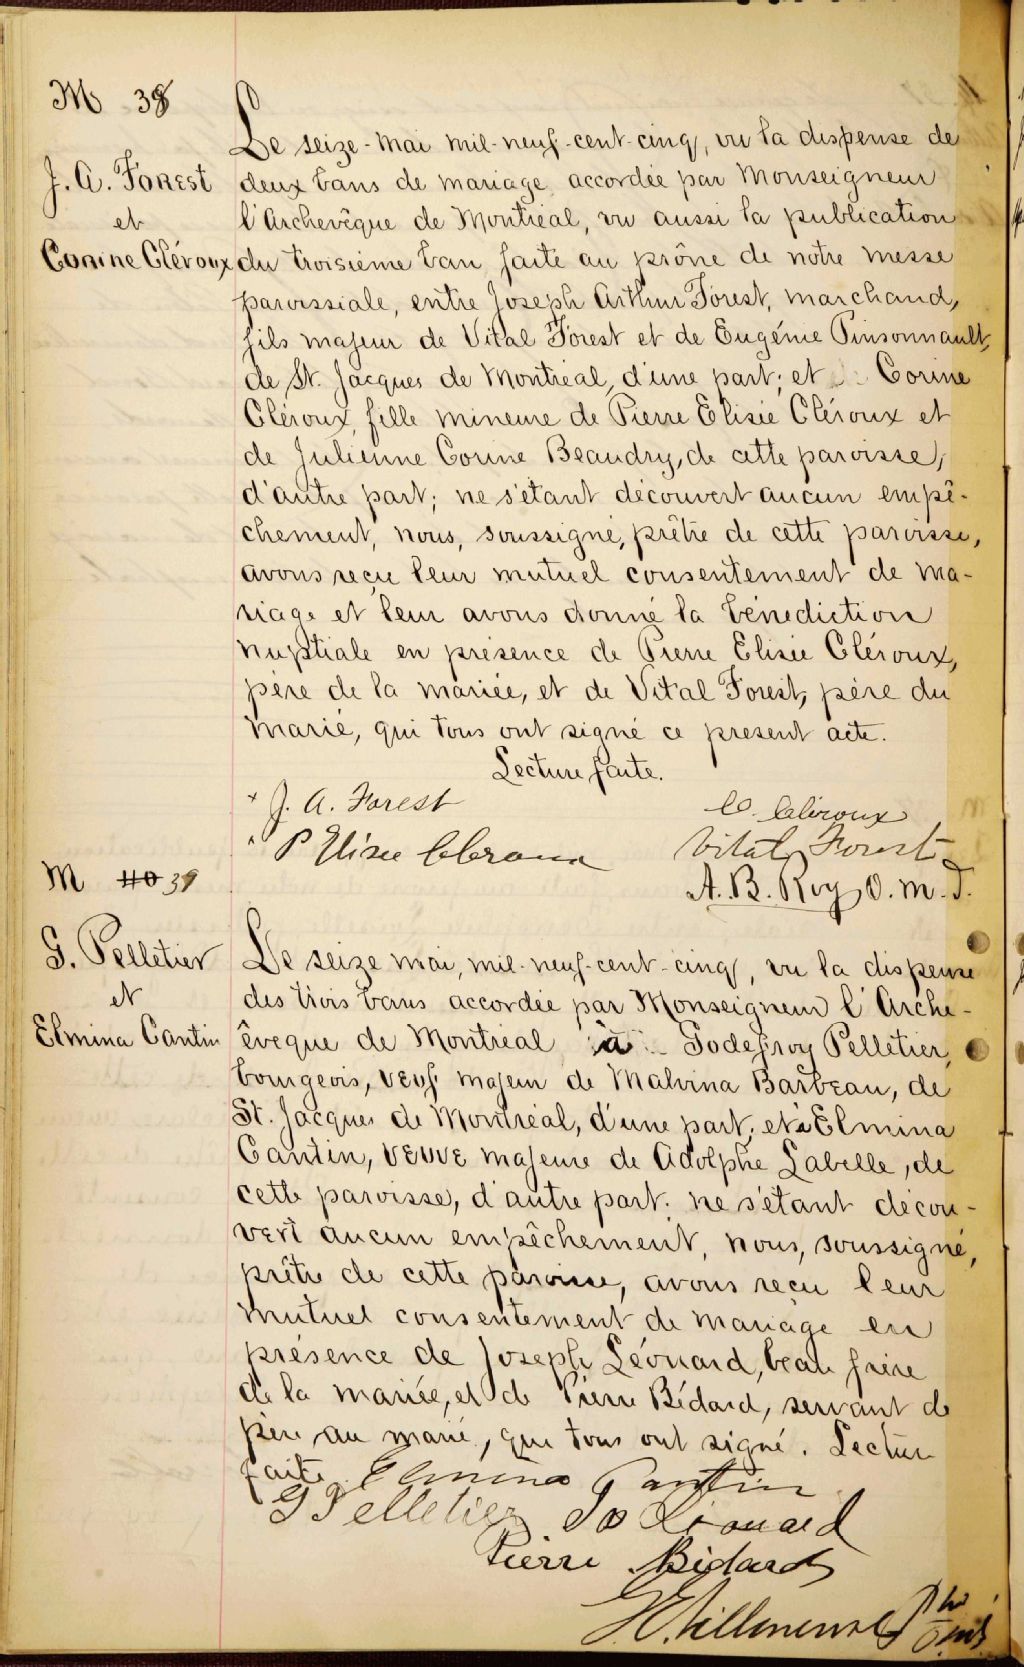 M 38
J. A. Forest
et
Corine Cléroux
Le seize-mai mil-neuf-cent-cinq, vu la dispense de
deux bans de mariage accordée par Monseigneur
l'Archevêque de Montréal, vu aussi la publication
du troisième ban faite au prône de notre messe
paroissiale, entre Joseph Arthur Forest, marchand,
fils majeur de Vital Forest et de Eugénie Pinsonnault,
de St. Jacques de Montréal, d'une part; et Corine
Cléroux, fille mineure de Pierre Elisée Cléroux et
de Julienne Corine Beaudry, de cette paroisse,
d'autre part; ne s'étant découvert aucun empê-
chement, nous, soussigné, prêtre de cette paroisse,
avons reçu leur mutuel consentement de ma-
riage et leur avons donné la bénédiction
nuptiale en présence de Pierre Elisée Cléroux,
père de la mariée, et de Vital Forest, père du
marié, qui tous ont signé ce present acte.
Lecture faite.
J. A. Forest
C. Cléroux
P Elisée Cléroux
Vital Forest
A. B. Roy O. M. I.
M 40 39
G. Pelletier
et
Elmina Cantin
Le seize mai, mil-neuf-cent-cinq, vu la dispense
des trois bans accordée par Monseigneur l'Arche-
êveque de Montréal à Godefroy Pelletier,
bourgeois, veuf majeur de Malvina Barbeau, de
St. Jacques de Montréal, d'une part; et à Elmina
Cantin, veuve majeure de Adolphe Labelle, de
cette paroisse, d'autre part. ne s'étant décou-
vert aucun empêchement, nous, soussigné,
prêtre de cette paroisse, avons reçu leur
mutuel consentement de mariage en
présence de Joseph Léonard, beau frère
de la mariée, et de Pierre Bédard, servant de
père au marié, qui tous ont signé. Lecture
faite. Elmina Cantin
G Pelletier Jos Léonard
Pierre Bédard
G E Villeneuve Ptre
O.M.I.